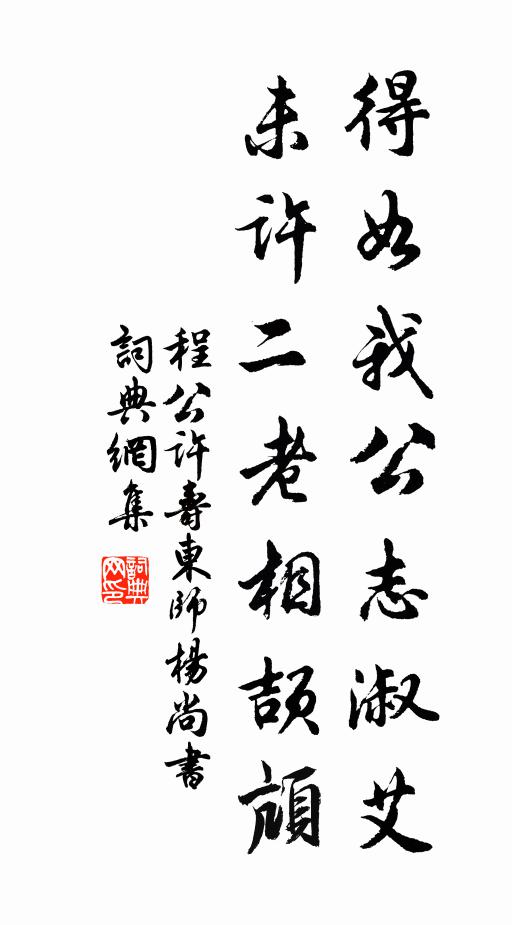 得如我公志淑艾
未許二老相頡頏
程公許壽東師楊尚書
詞典網集
詞典网印